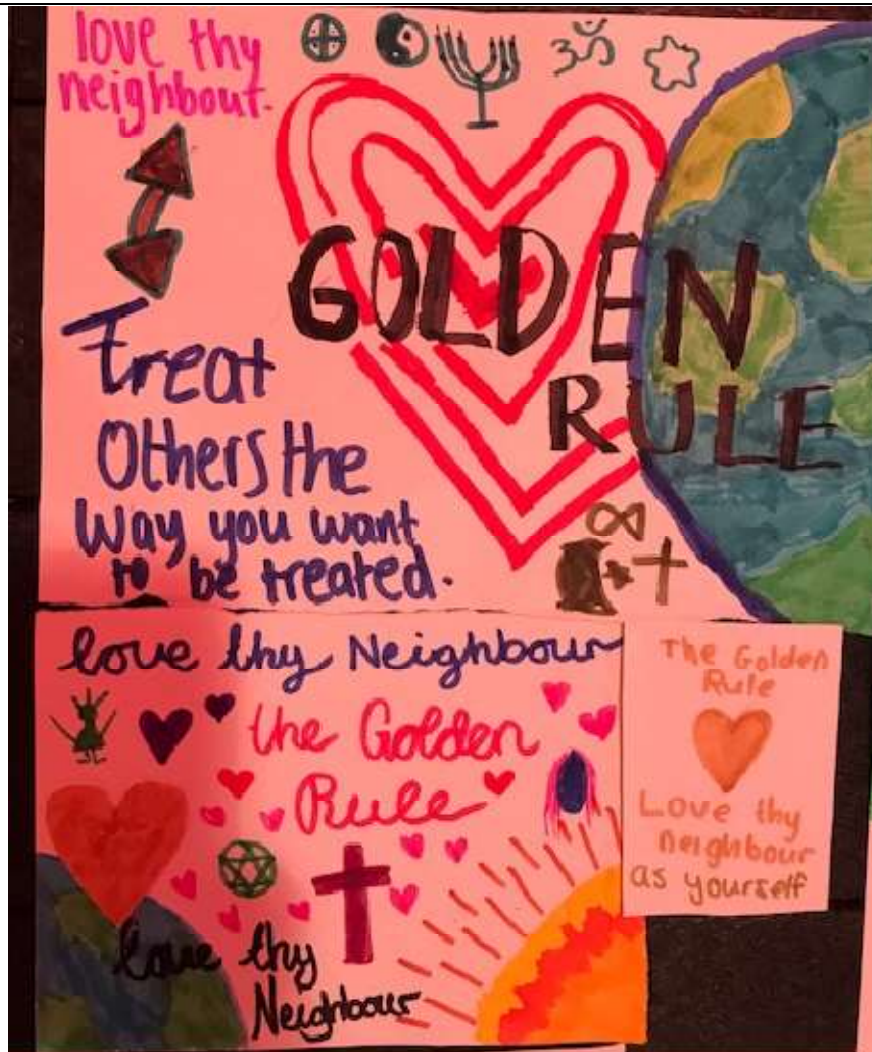 love thy
neighbour.
GOLDEN
RULE
Treat
Others the
Way you want
to be treated.
love thy Neighbour
the Golden
Rule
love thy
Neighbour
The Golden
Rule
Love thy
neighbour
as yourself